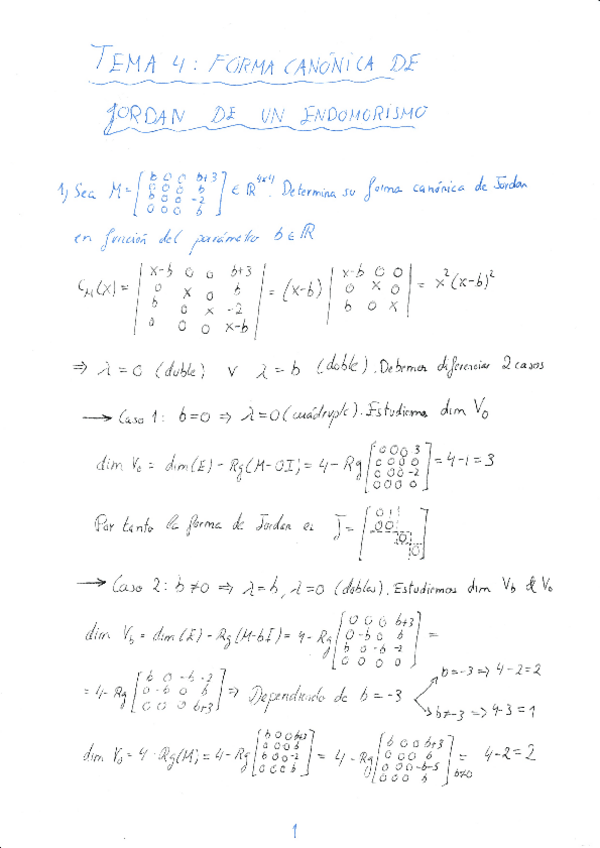 TEMA 4: FORMA CANÓNICA DE
JORDAN DE UN ENDOMORISMO
1) Sea M = [b 0 0 b+3; 0 0 0 b; b 0 0 -2; 0 0 0 b] ∈ ℝ^4x4. Determina su forma canónica de Jordan
en función del parámetro b ∈ ℝ
C_M(x) = |x-b 0 0 b+3; 0 x 0 b; b 0 x -2; 0 0 0 x-b| = (x-b) |x-b 0 0; 0 x 0; b 0 x| = x²(x-b)²
⇒ λ=0 (doble) v λ=b (doble). Debemos diferenciar 2 casos
→ Caso 1: b=0 ⇒ λ=0 (cuádruple). Estudiemos dim V₀
dim V₀ = dim(E) - Rg(M-0I) = 4 - Rg [0 0 0 3; 0 0 0 0; 0 0 0 -2; 0 0 0 0] = 4-1 = 3
Por tanto la forma de Jordan es J = [0 1; 0 0; 0; 0]
→ Caso 2: b≠0 ⇒ λ=b, λ=0 (dobles). Estudiemos dim V_b & V₀
dim V_b = dim(E) - Rg(M-bI) = 4 - Rg [0 0 0 b+3; 0 -b 0 b; b 0 -b -2; 0 0 0 0] =
= 4 - Rg [b 0 -b -2; 0 -b 0 b; 0 0 0 b+3] ⇒ Dependiendo de b = -3
b=-3 ⇒ 4-2=2
b≠-3 ⇒ 4-3=1
dim V₀ = 4 - Rg(M) = 4 - Rg [b 0 0 b+3; 0 0 0 b; b 0 0 -2; 0 0 0 b] = 4 - Rg [b 0 0 b+3; 0 0 0 b; 0 0 0 -b-5; 0 0 0 b] = 4-2=2
b≠0
1